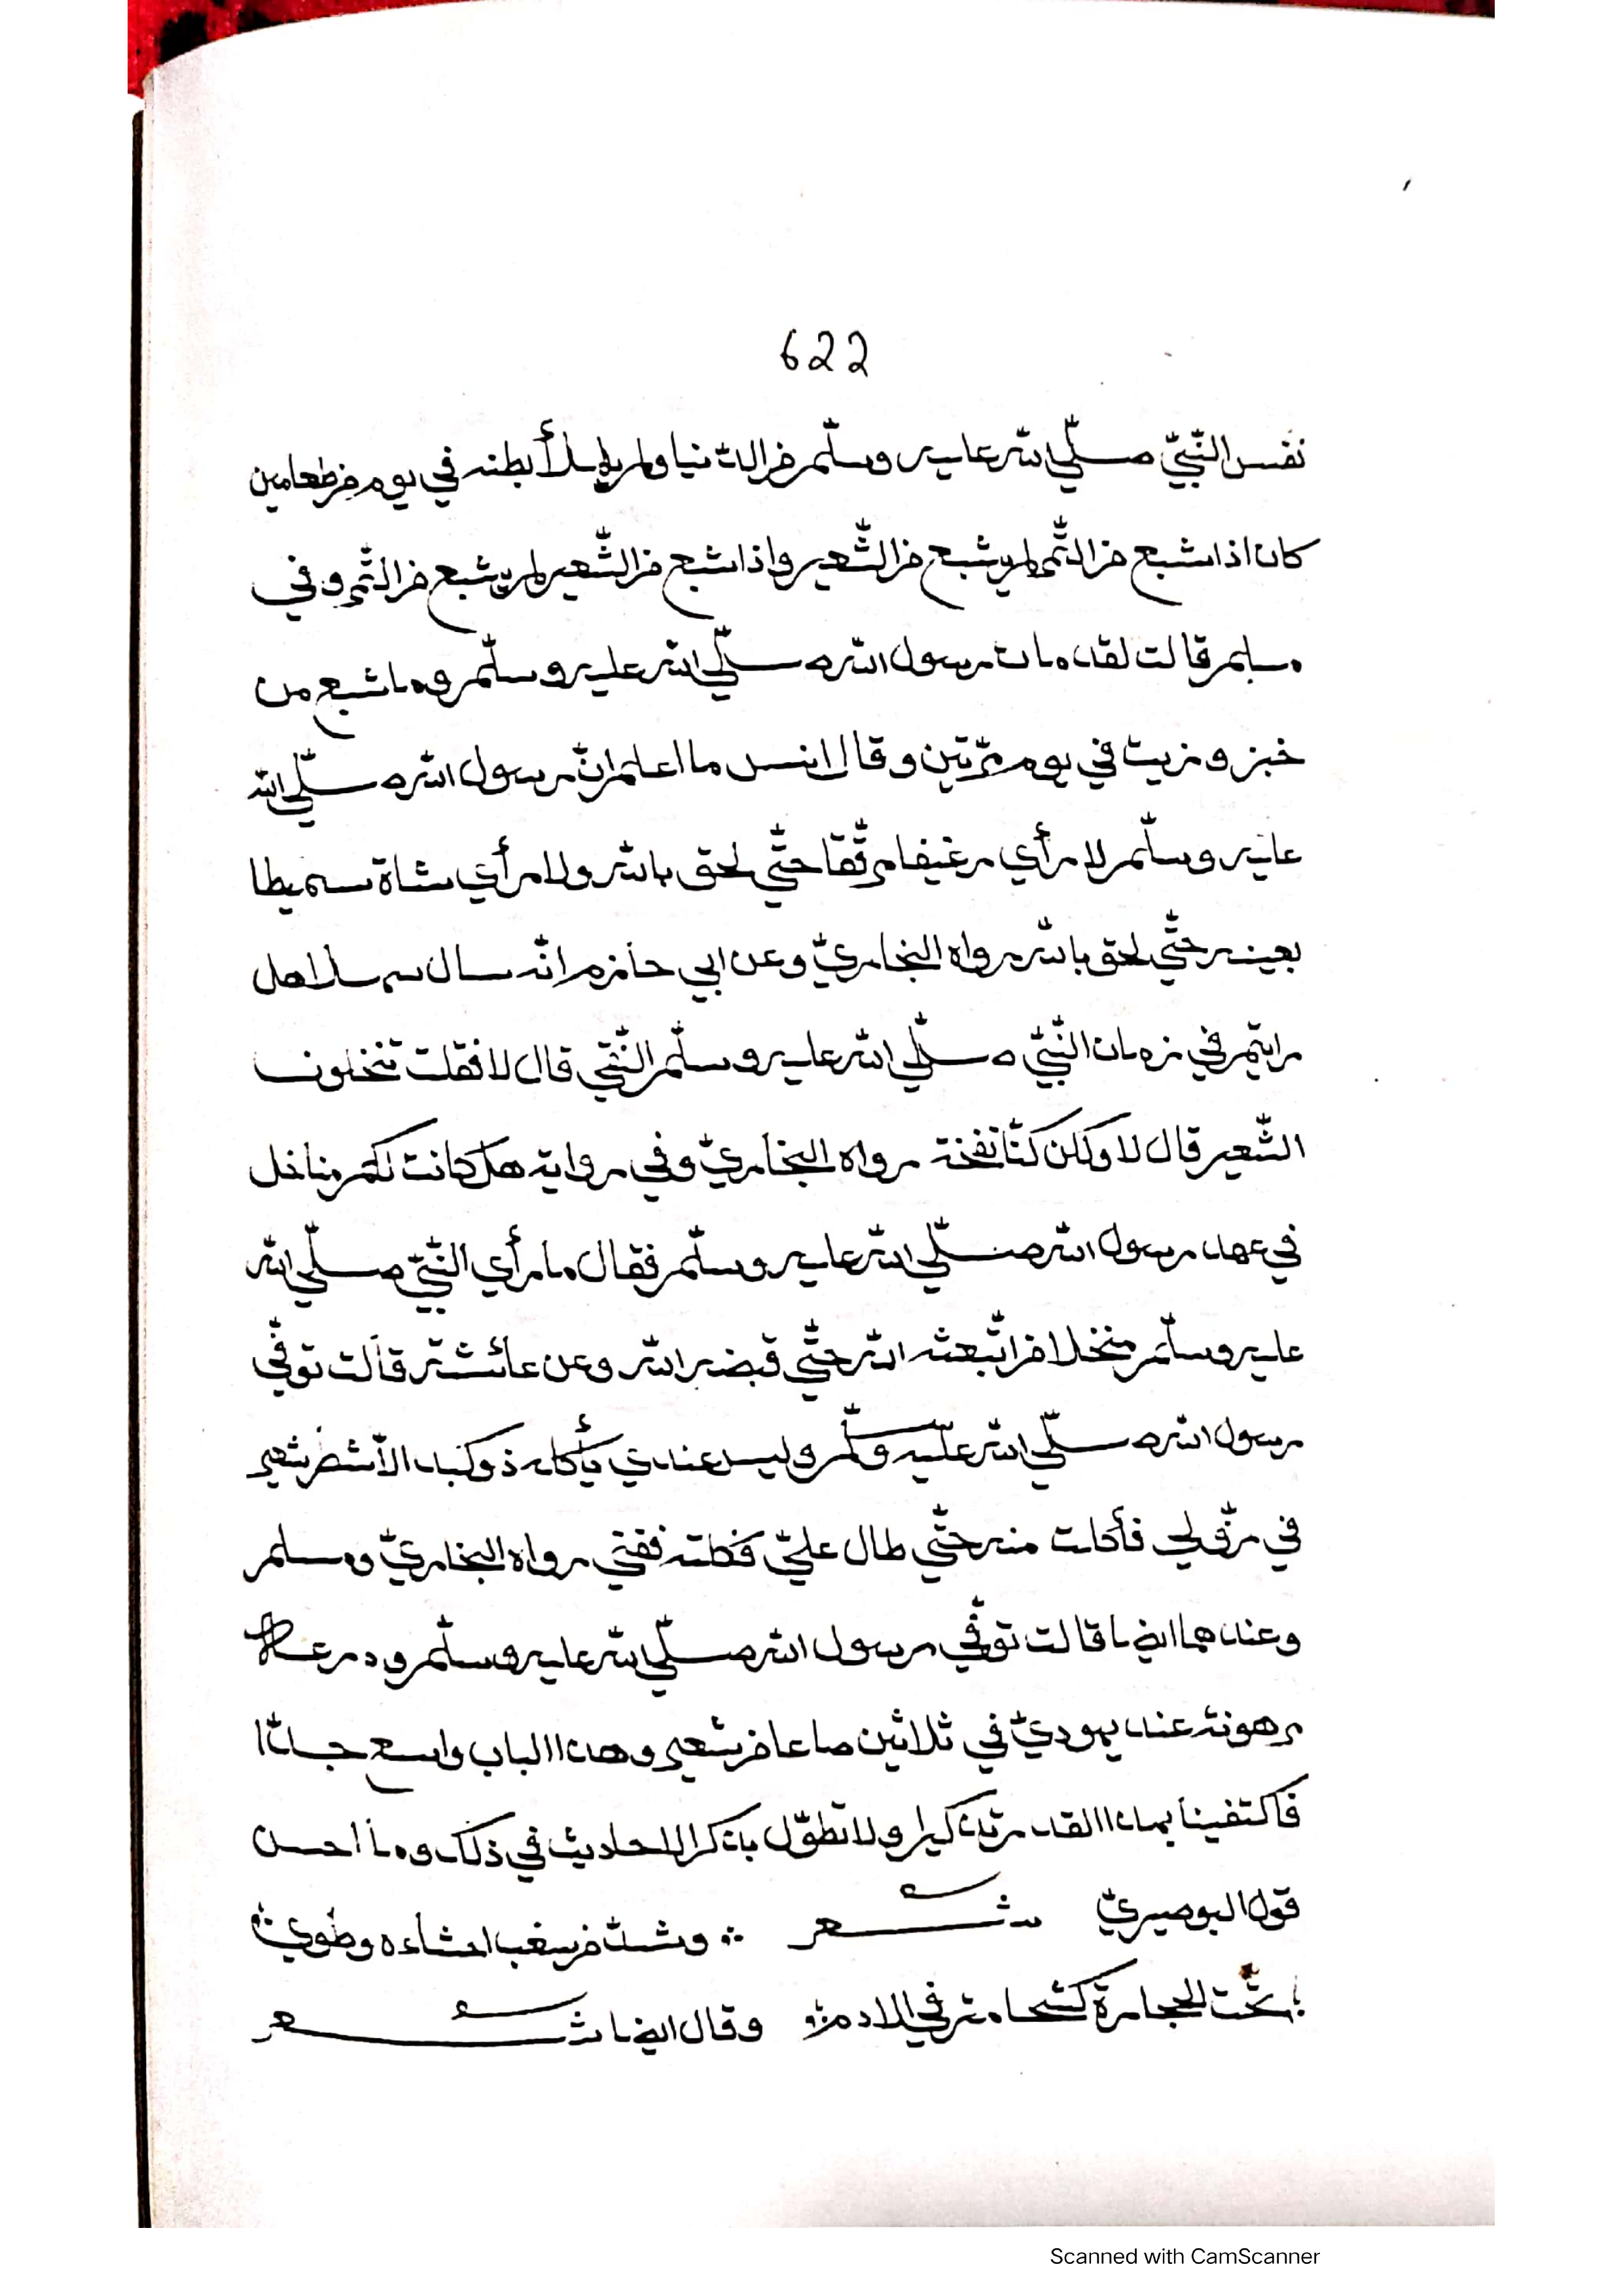 622
نفس النّبيّ صلّي الله عليه وسلّم من الدّنيا ولم يملأ بطنه في يوم من طعامين
كان اذا شبع من التّمر لم يشبع من الشّعير واذا شبع من الشّعير لم يشبع من التّمر وفي
مسلم قالت لقد مات رسول الله صلّي الله عليه وسلّم وما شبع من
خبز وزيت في يوم مرّتين وقال انس ما اعلم انّ رسول الله صلّي الله
عليه وسلّم لا رأي رغيفا مرقّقا حتّي لحق بالله ولا رأي شاة سميطا
بعينه حتّي لحق بالله رواه البخاريّ وعن ابي حازم انّه سال سهلا هل
رايتم في زمان النّبيّ صلّي الله عليه وسلّم النّقي قال لا فقلت تنخلون
الشّعير قال لا ولكن كنّا ننفخة رواه البخاريّ وفي رواية هل كانت لكم مناخل
في عهد رسول الله صلّي الله عليه وسلّم فقال ما رأي النّبيّ صلّي الله
عليه وسلّم منخلا من ابتعثه الله حتّي قبضه الله وعن عائشة قالت توفّي
رسول الله صلّي الله عليه وسلّم وليس عندي يأكله ذو كبد الّا شطر شعير
في رفّ لي فأكلت منه حتّي طال عليّ فكلته ففني رواه البخاريّ ومسلم
وعندهما ايضا قالت توفّي رسول الله صلّي الله عليه وسلّم ودرعه
مرهونة عند يهوديّ في ثلاثين صاعا من شعير وهذا الباب واسع جدّا
فاكتفينا بهذا القدر تذكيرا ولا نطوّل بذكر الاحاديث في ذلك وما احسن
قول البوصيريّ شعر وشدّ من سغب احشاءه وطوي
تحت الحجارة كشحا مترف الادم وقال ايضا شعر
Scanned with CamScanner